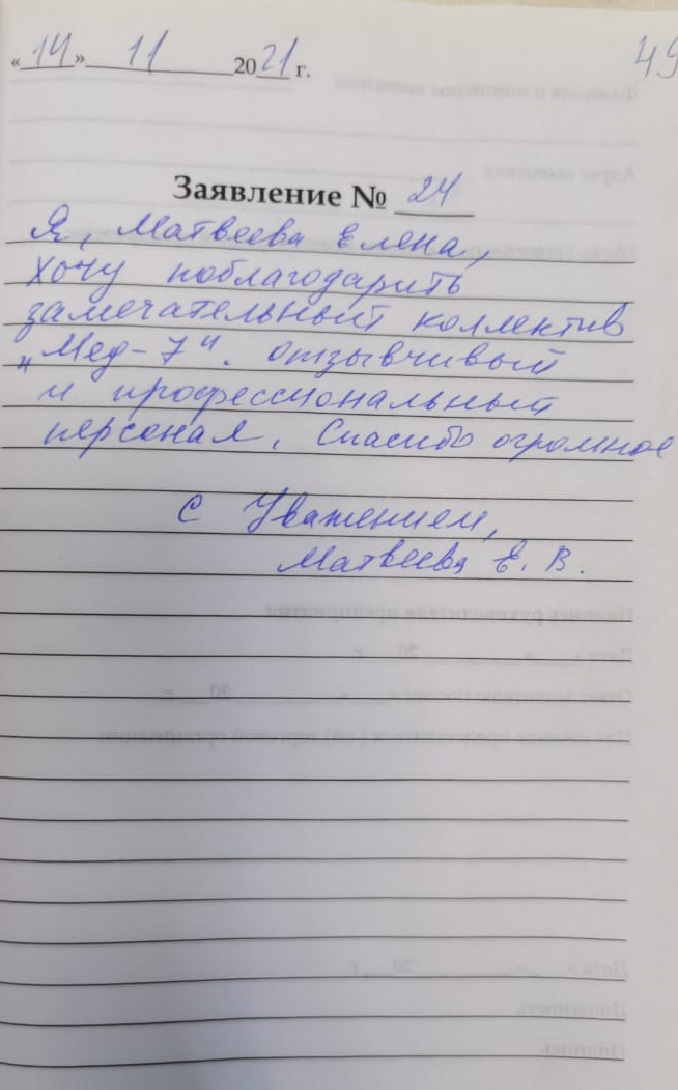 «14» 11 2021 г.
49
Заявление № 24
Я, Матвеева Елена,
хочу поблагодарить
замечательный коллектив
„Мед-7". отзывчивый
и профессиональный
персонал. Спасибо огромное
С Уважением,
Матвеева Е. В.